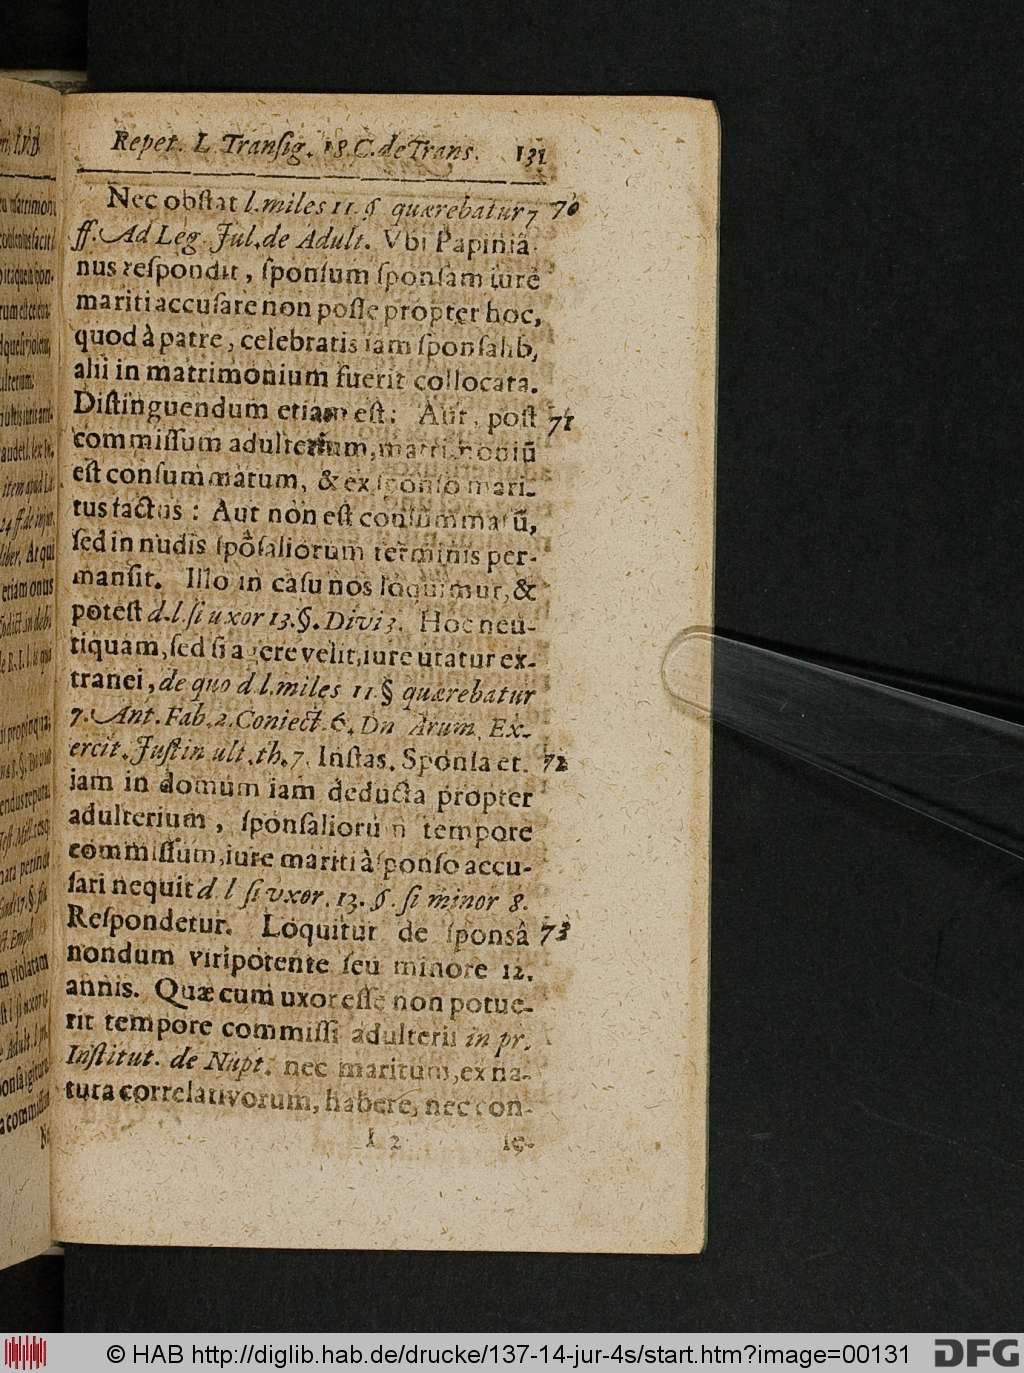 Repet. L. Transig. 18. C. de Trans. 131
Nec obstat l. miles 11. § quærebatur 7 70
ff. Ad Leg. Jul. de Adult. Vbi Papiniã-
nus respondit, sponsum sponsam iure
mariti accusare non posse propter hoc,
quod à patre, celebratis iam sponsalib,
alii in matrimonium fuerit collocata.
Distinguendum etiam est: Aut, post 71
commissum adulterium, matrimoniũ
est consummatum, & ex sponso mari-
tus factus: Aut non est consummatũ,
sed in nudis spõsaliorum terminis per-
mansit. Illo in casu nos loquimur, &
potest d. l. si uxor 13. §. Divi 3. Hoc neu-
tiquam, sed si agere velit, iure utatur ex-
tranei, de quo d. l. miles 11 § quærebatur
7. Ant. Fab. 2. Coniect. 6. Dn Arum. Ex-
ercit. Justin ult. th. 7. Instas. Sponsa et- 72
iam in domum iam deducta propter
adulterium, sponsaliorũ tempore
commissum, iure mariti à sponso accu-
sari nequit d l si uxor. 13. §. si minor 8.
Respondetur. Loquitur de sponsâ 73
nondum viripotente seu minore 12.
annis. Quæ cum uxor esse non potue-
rit tempore commissi adulterii in pr.
Institut. de Nupt. nec maritum, ex na-
tura correlativorum, habere, nec con-
I 2
© HAB http://diglib.hab.de/drucke/137-14-jur-4s/start.htm?image=00131
DFG